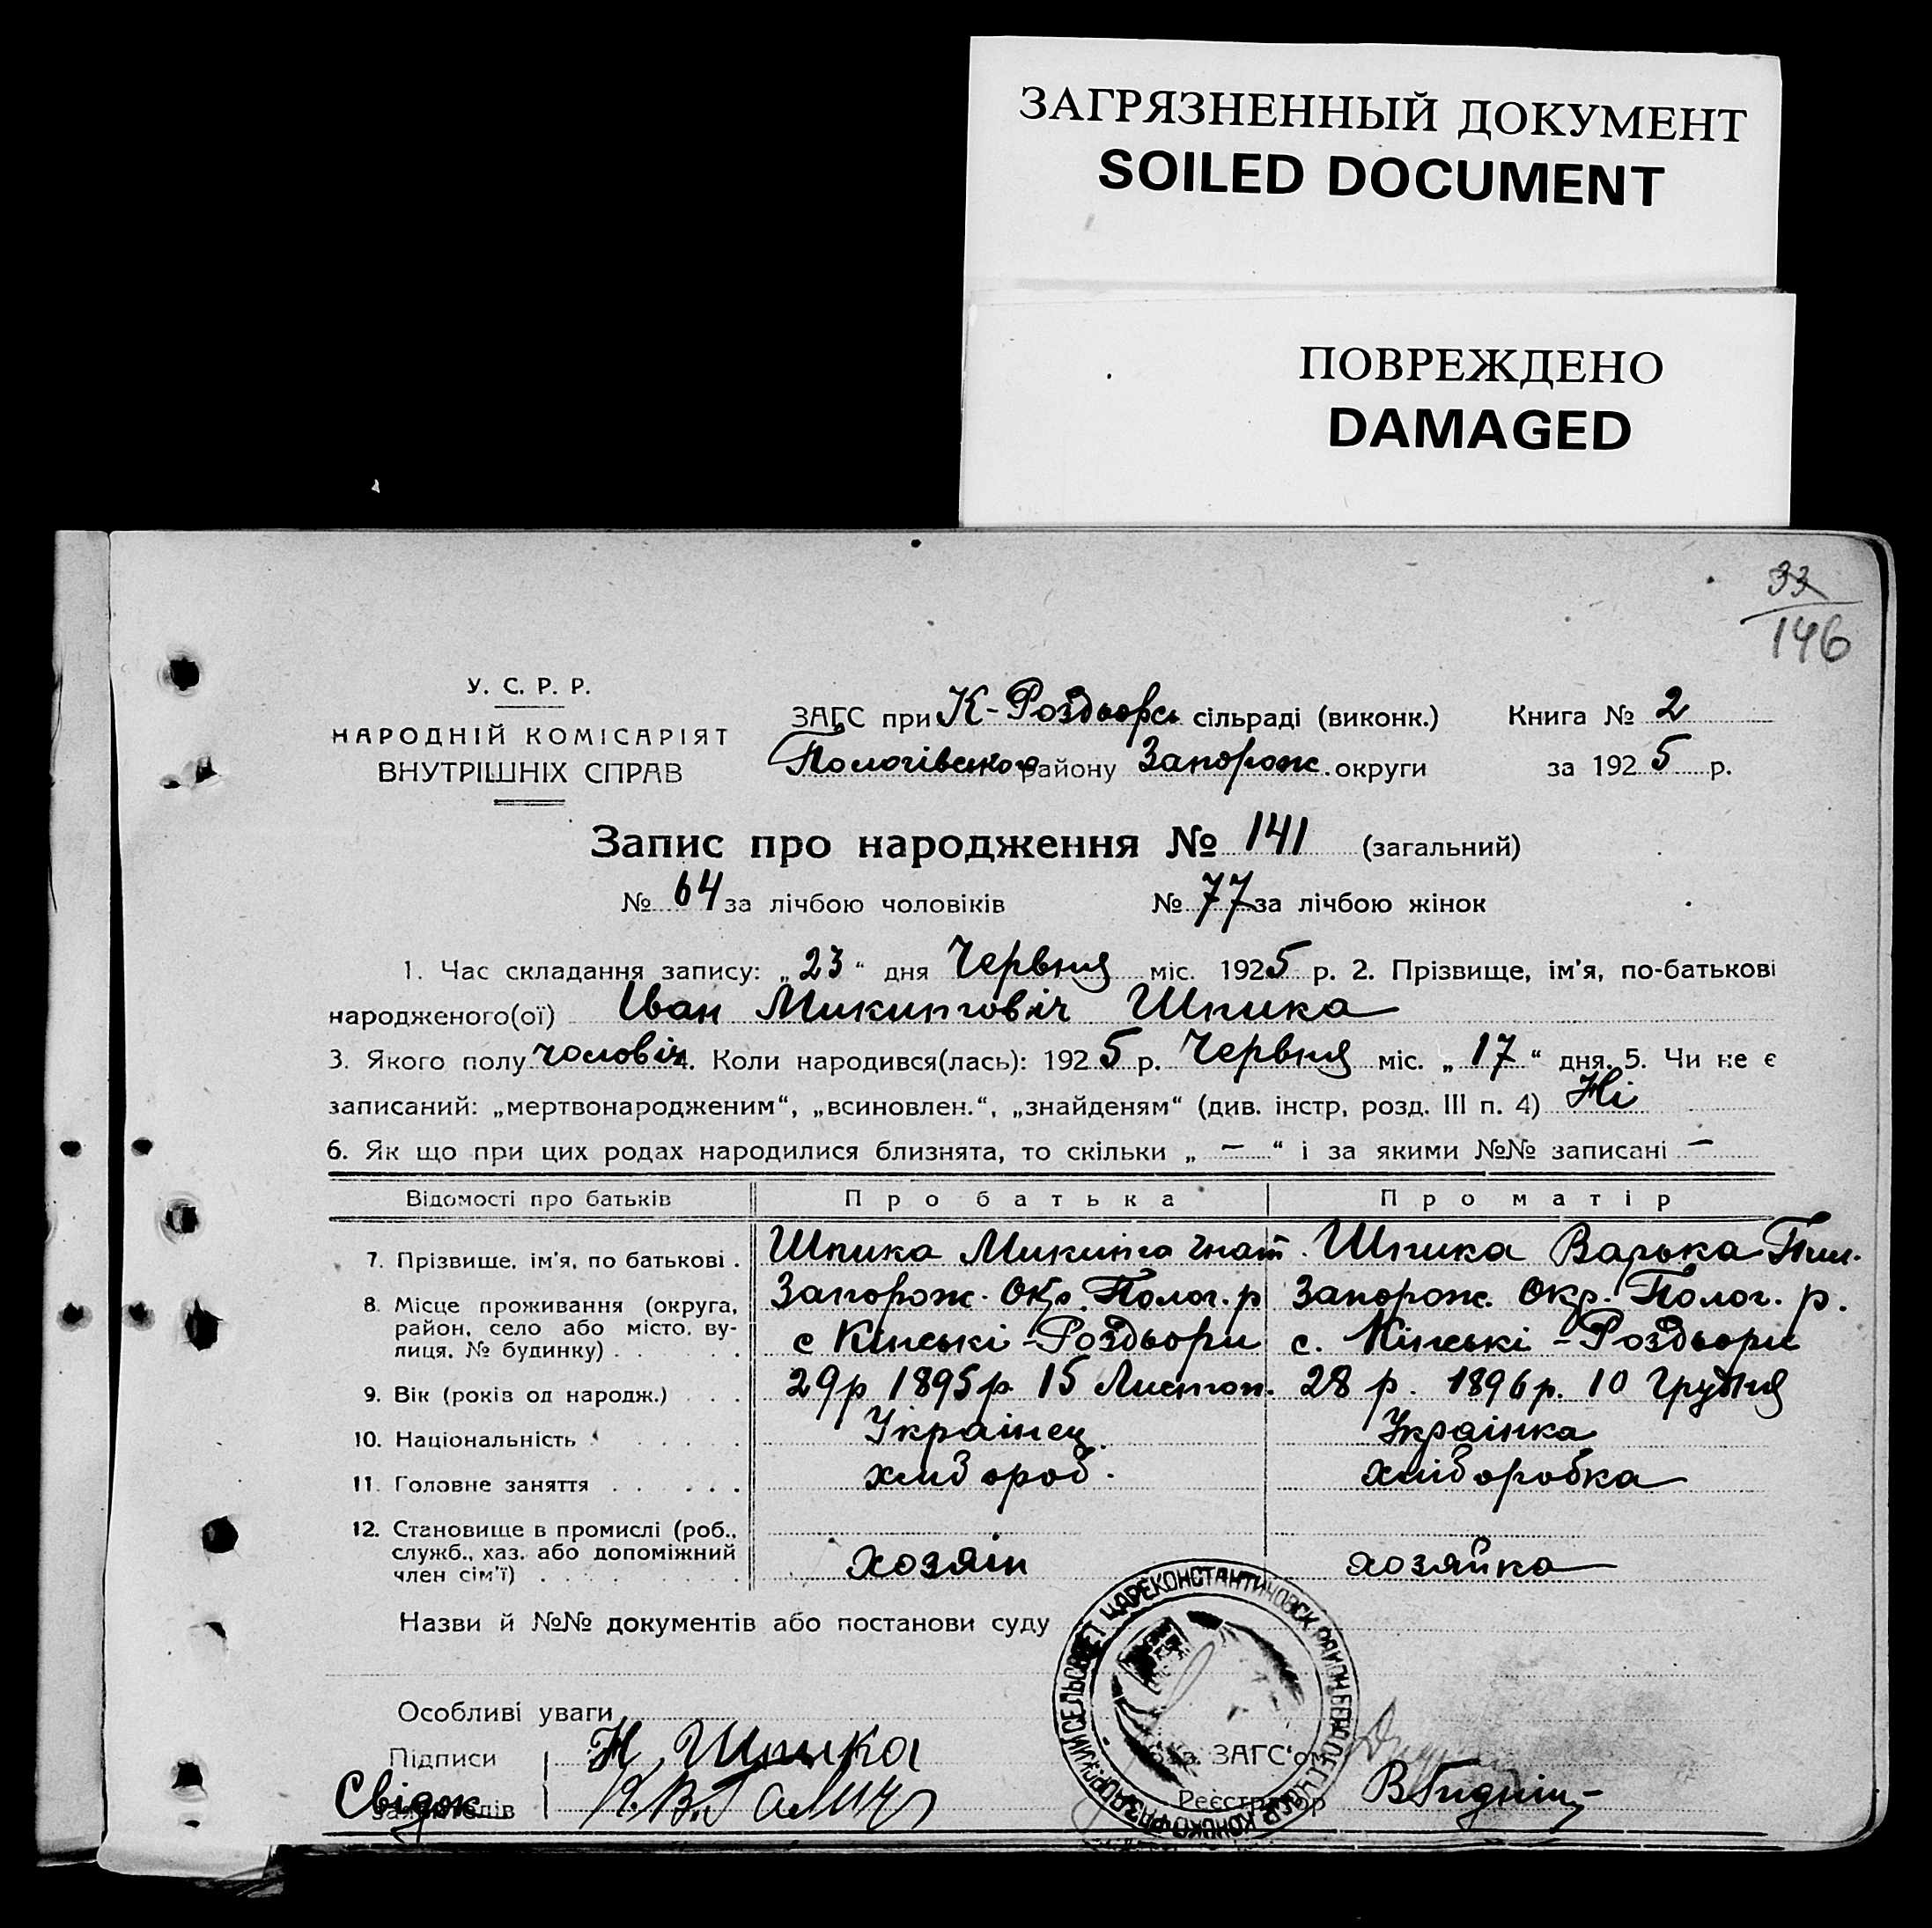 ЗАГРЯЗНЕННЫЙ ДОКУМЕНТ
SOILED DOCUMENT
ПОВРЕЖДЕНО
DAMAGED
33
146
У. С. Р. Р.
НАРОДНІЙ КОМІСАРІЯТ
ВНУТРІШНІХ СПРАВ
ЗАГС при К-Роздорс сільраді (виконк.) Книга № 2
Пологівського району Запорож. округи за 1925 р.
Запис про народження № 141 (загальний)
№ 64 за лічбою чоловіків № 77 за лічбою жінок
1. Час складання запису: „23“ дня Червня міс. 1925 р. 2. Прізвище, ім'я, по-батькові
народженого(ої) Іван Микитовіч Шпика
3. Якого полу чоловіч. 4. Коли народився(лась): 1925 р. Червня міс. „17“ дня. 5. Чи не є
записаний: „мертвонародженим“, „всиновлен.“, „знайденям“ (див. інстр, розд. III п. 4) Ні
6. Як що при цих родах народилися близнята, то скільки „ — “ і за якими №№ записані —
Відомості про батьків Про батька Про матір
7. Прізвище, ім'я, по батькові . Шпика Микита Гнат. Шпика Варька Пил.
8. Місце проживання (округа, район, село або місто, вулиця, № будинку) . Запорож. Окр. Полог. р Запорож. Окр. Полог. р.
с Кінські-Роздори с. Кінські-Роздори
9. Вік (років од народж.) . . . 29р 1895р 15 Листоп. 28 р. 1896р. 10 Грудня
10. Національність Українец Українка
11. Головне заняття . . . . . . хліборob. хліборобка
12. Становище в промислі (роб., служб., хаз. або допоміжний член сім'ї) хозяін хозяйка
Назви й №№ документів або постанови суду
Особливі уваги
Підписи Н Шпика Зав. ЗАГС'ом
Свідок заявителів Реєстратор
СЕЛЬСОВЕТ ЦАРЕКОНСТАНТИНОВСК. РАЙОН